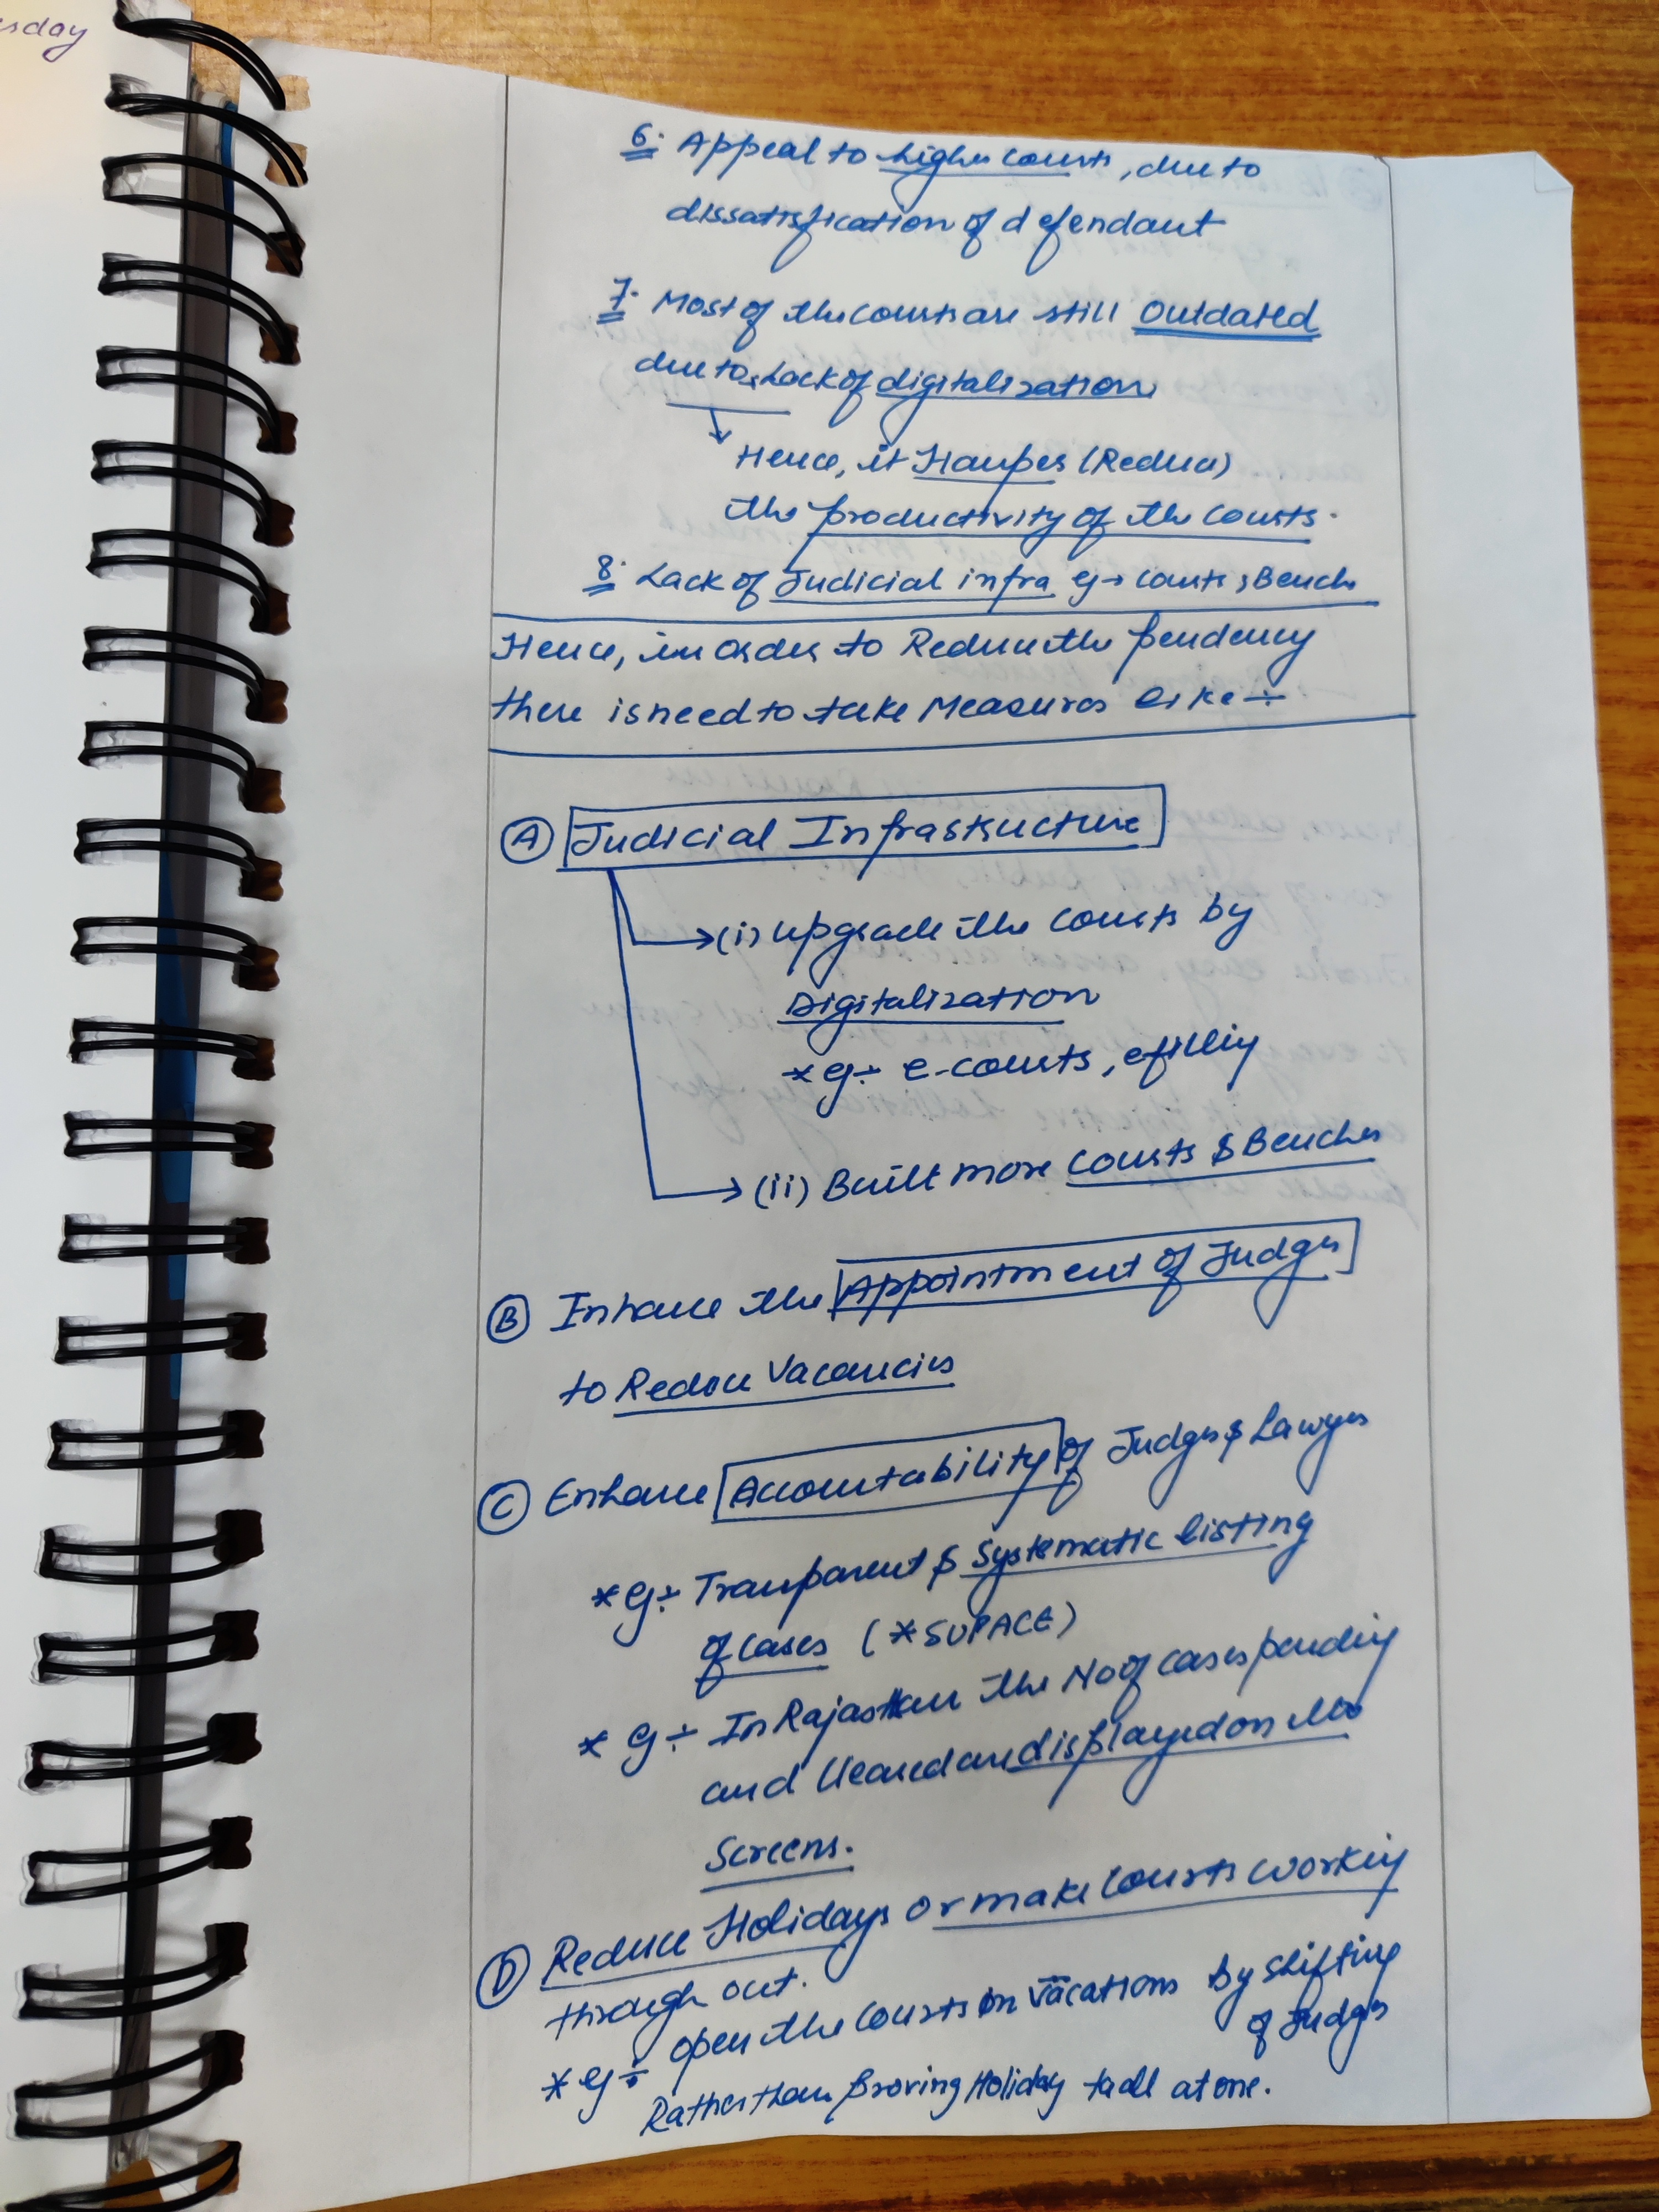 sday
6. Appeal to higher courts, due to
dissatisfication of defendant
7. Most of the courts are still Outdated
due to Lack of digitalization
Hence, it Hampes (Reduce)
the productivity of the courts.
8. Lack of Judicial infra eg → courts, Benchs
Hence, in order to Reduce the pendency
there is need to take Measures like ÷
(A) Judicial Infrastructure
→ (i) upgrade the courts by
Digitalization
* eg ÷ e-courts, efilliy
→ (ii) Built more courts & Benches
(B) Inhance the Appointment of Judges
to Reduce Vacancies
(C) Enhance Accountability of Judges & Lawyes
* eg ÷ Tranparent & Systematic listing
of cases (*SUPACE)
* eg ÷ In Rajasthan the No of cases pending
and cleared are displayed on the
Screens.
(D) Reduce Holidays or make courts working
through out.
* eg ÷ open the courts in vacations by shifting
of Judges
Rather than proving Holiday to all at one.